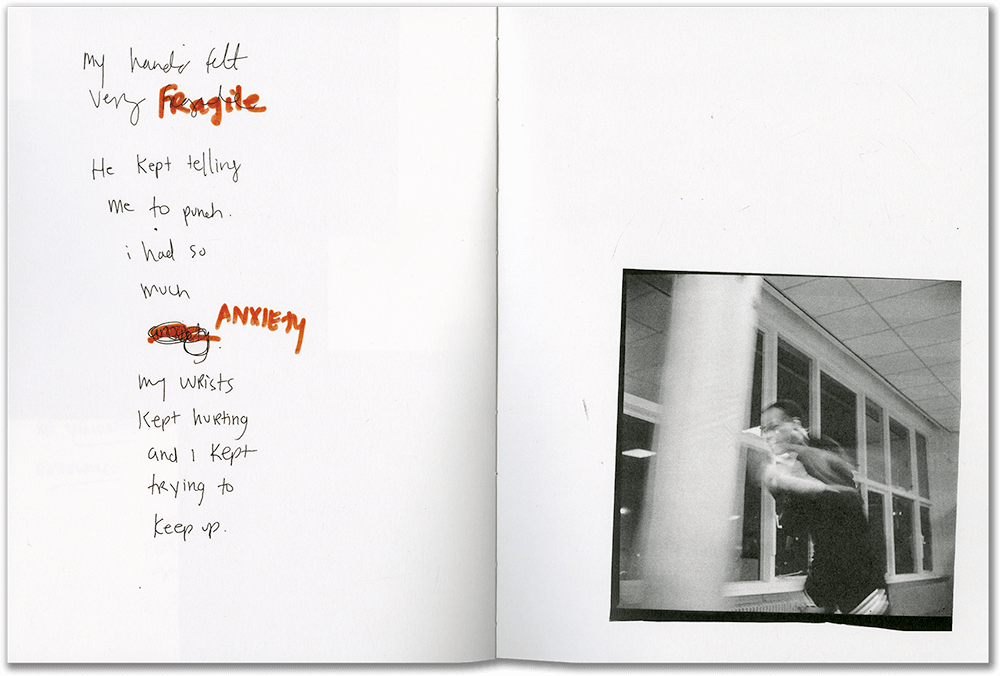 my hands felt
very Fragile
He kept telling
me to punch.
i had so
much
anxiety. ANXIETY
my wrists
kept hurting
and i kept
trying to
keep up.